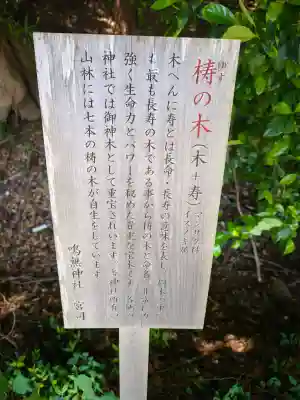 ゆす
梼の木(木+寿)マンサク科
イスノキ属
木へんに寿とは長命・長寿の意味を表し
も最も長寿の木である事から梼の木と命名
強く生命力とパワーを秘めた
神社では御神木として重宝されいます
山林には七本の梼の木が自生をしています
鳴無神社 宮司